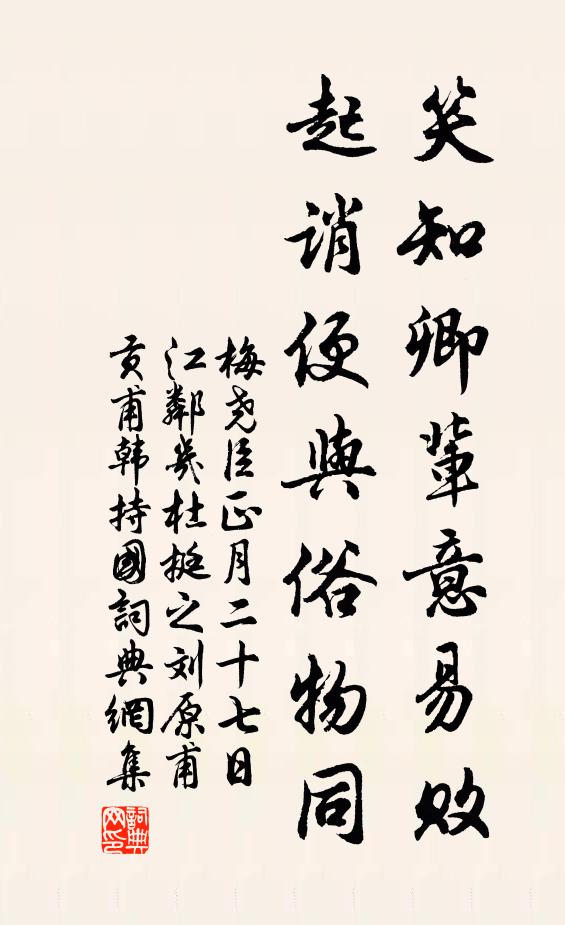 笑知卿輩意易败
起誚便與俗物同
梅尧臣正月二十七日
江鄰幾杜挺之刘原甫
贡甫韩持國詞典網集
詞典
网印